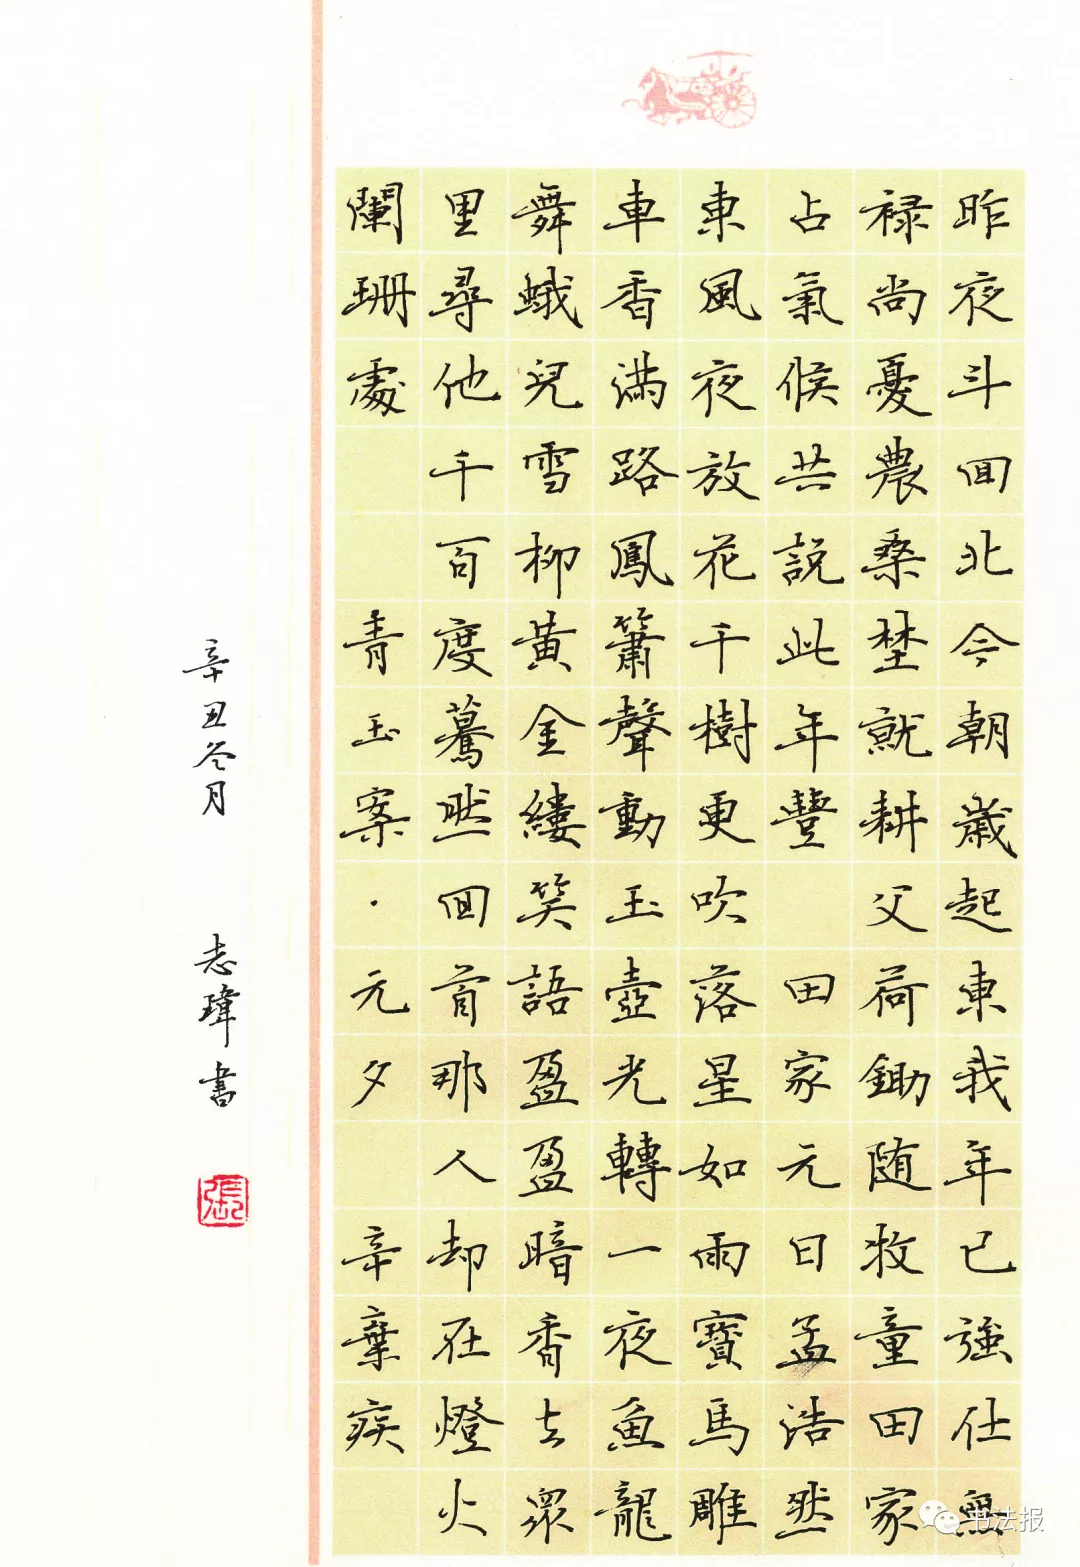 昨夜斗回北今朝歲起東我年已強仕無
禄尚憂農桑埜就耕父荷鋤随牧童田家
占氣候共説此年豐 田家元日孟浩然
東風夜放花千樹更吹落星如雨寶馬雕
車香滿路鳳簫聲動玉壺光轉一夜魚龍
舞蛾兒雪柳黄金縷笑語盈盈暗香去衆
里尋他千百度驀然回首那人却在燈火
闌珊處 青玉案·元夕 辛棄疾
辛丑冬月 志瑋書
張
书法报